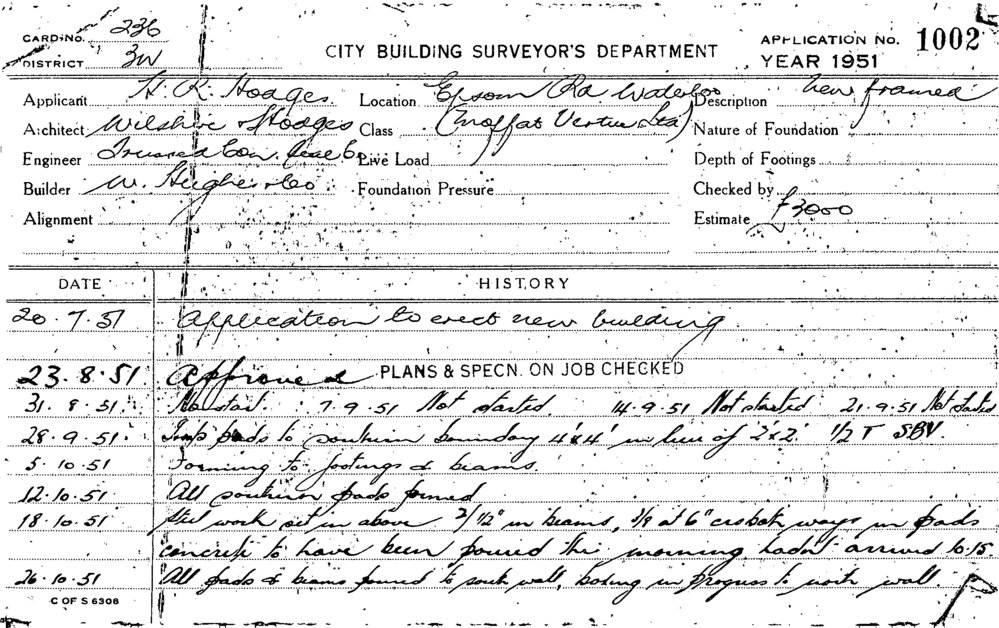 CARD No. 236
DISTRICT 3W
CITY BUILDING SURVEYOR'S DEPARTMENT
APPLICATION No. 1002
YEAR 1951
Applicant H. R. Hodges Location Epsom Rd Waterloo Description New framed
Architect Wilshire & Hodges Class (Moffat Virtue Ltd) Nature of Foundation
Engineer Trussed Conc. Steel Co. Live Load Depth of Footings
Builder W. Hughes & Co Foundation Pressure Checked by
Alignment Estimate £3000
DATE HISTORY
20.7.51 Application to erect new building
23.8.51 Approved PLANS & SPECN. ON JOB CHECKED
31.8.51. No start. 7.9.51 Not started. 14.9.51 Not started 21.9.51 Not started
28.9.51. pads to southern boundary 4'x4' in lieu of 2'x2'. 1/2 T SBV.
5.10.51 Forming to footings & beams.
12.10.51 All southern pads poured
18.10.51 Steel work set in above 1/2" in beams, 3/8 at 6" crs both ways in pads
concrete to have been poured this morning hadn't arrived 10.15
26.10.51 All pads & beams poured to south wall, boxing in progress to north wall.
C OF S 6308